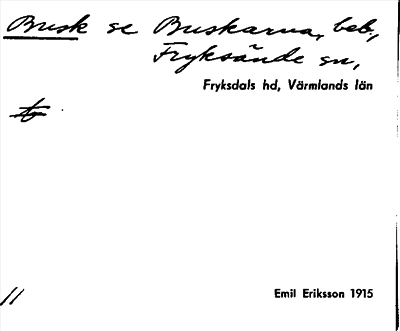 Busk se Buskarna, beb.,
Fryksände sn,
Fryksdals hd, Värmlands län
Emil Eriksson 1915